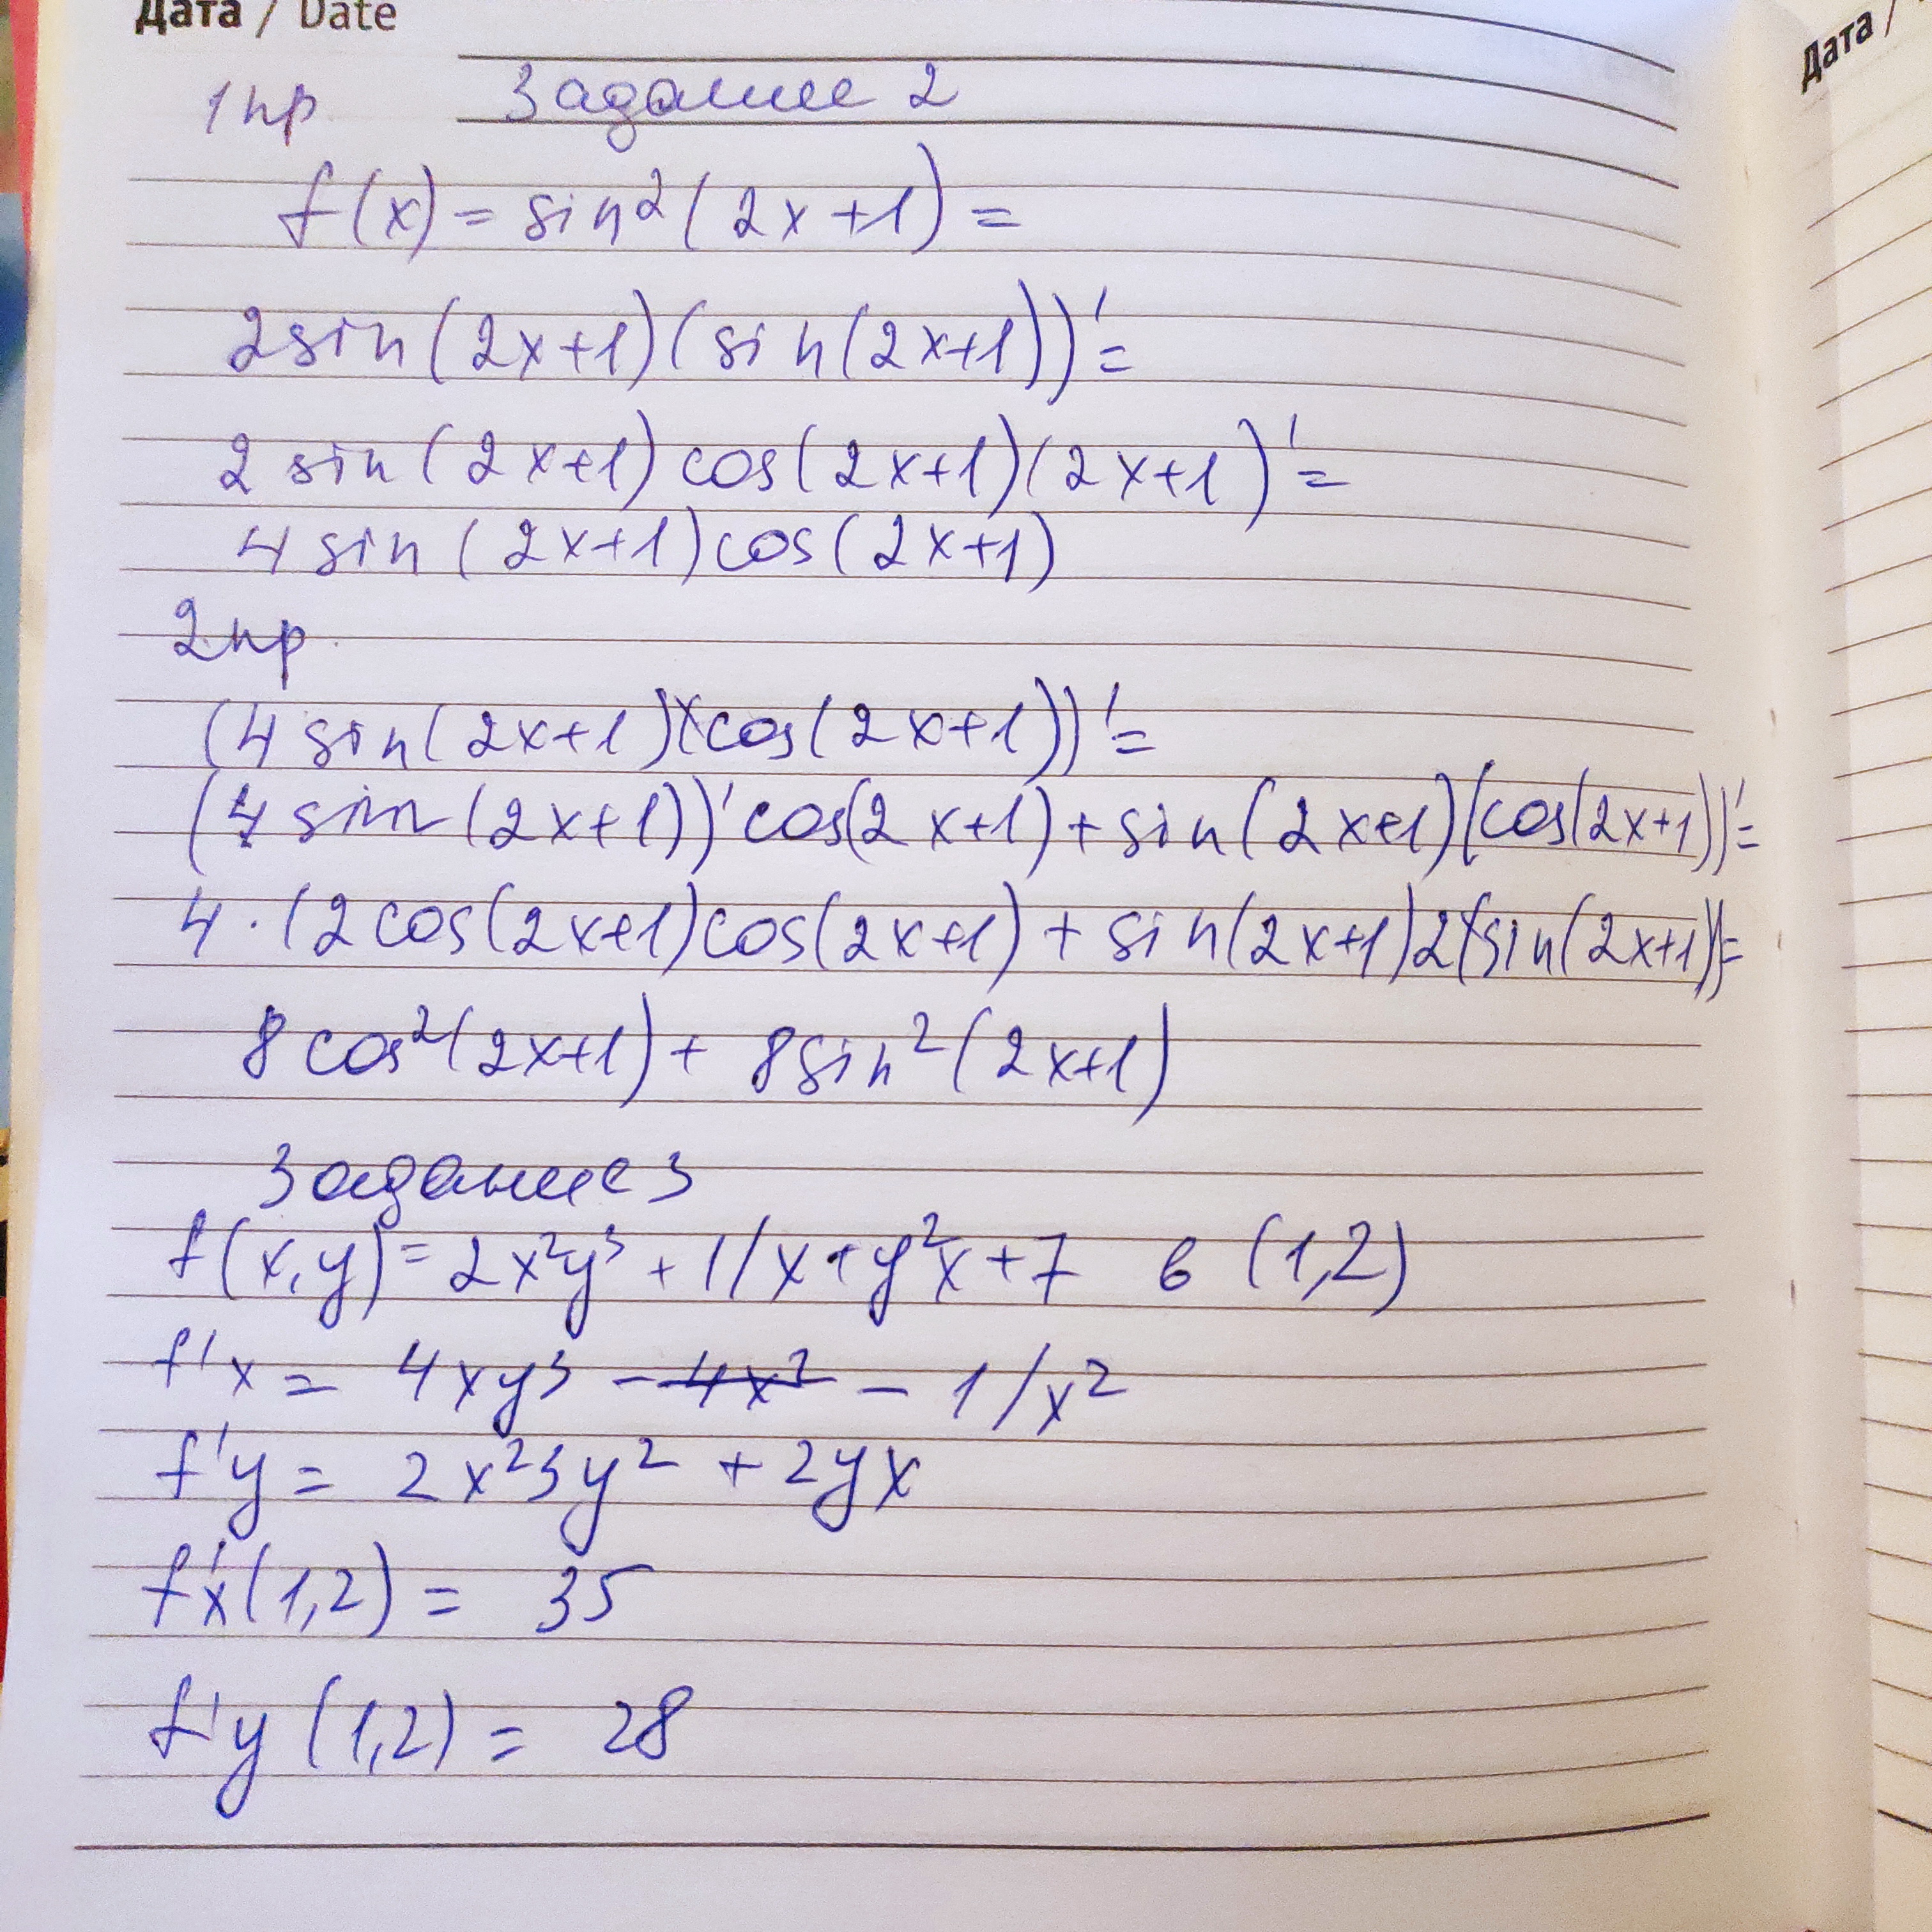 Дата / Date
Задание 2
1 пр
f(x) = sin²(2x+1) =
2sin(2x+1)(sin(2x+1))' =
2 sin(2x+1) cos(2x+1)(2x+1)' =
4 sin(2x+1)cos(2x+1)
2 пр.
(4 sin(2x+1)(cos(2x+1))' =
(4 sin(2x+1))'cos(2x+1) + sin(2x+1)(cos(2x+1))' =
4·(2cos(2x+1)cos(2x+1) + sin(2x+1)2(sin(2x+1)) =
8cos²(2x+1) + 8sin²(2x+1)
Задание 3
f(x,y) = 2x²y³ + 1/x + y²x + 7 в (1,2)
f'x = 4xy³ - 4x² - 1/x²
f'y = 2x²3y² + 2yx
f'x(1,2) = 35
f'y(1,2) = 28
Дата /